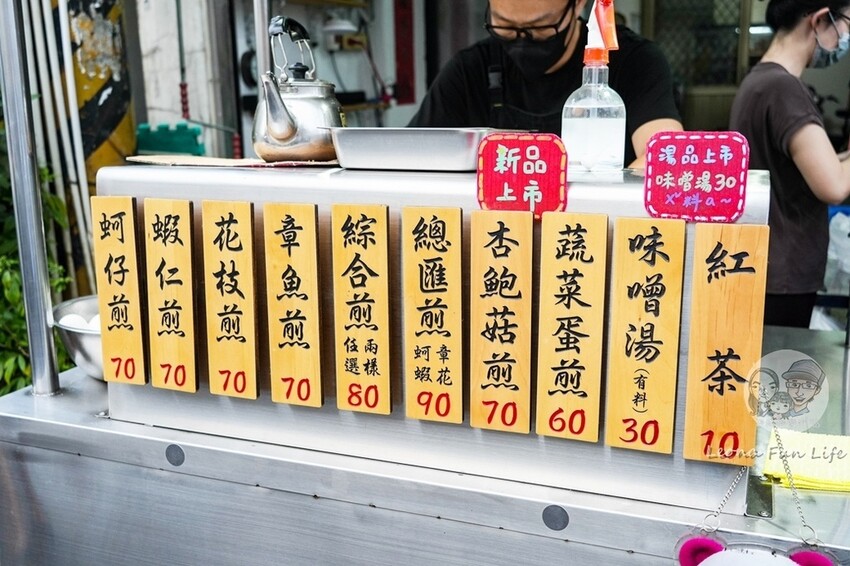 新品
上市
湯品上市
味噌湯30
ㄨˋ料ㄛ~
蚵仔煎
70
蝦仁煎
70
花枝煎
70
章魚煎
70
綜合煎
兩樣
任選
80
總匯煎
章花
蚵蝦
90
杏鮑菇煎
70
蔬菜蛋煎
60
味噌湯
(有料)
30
紅茶
10
Leona Fun Life